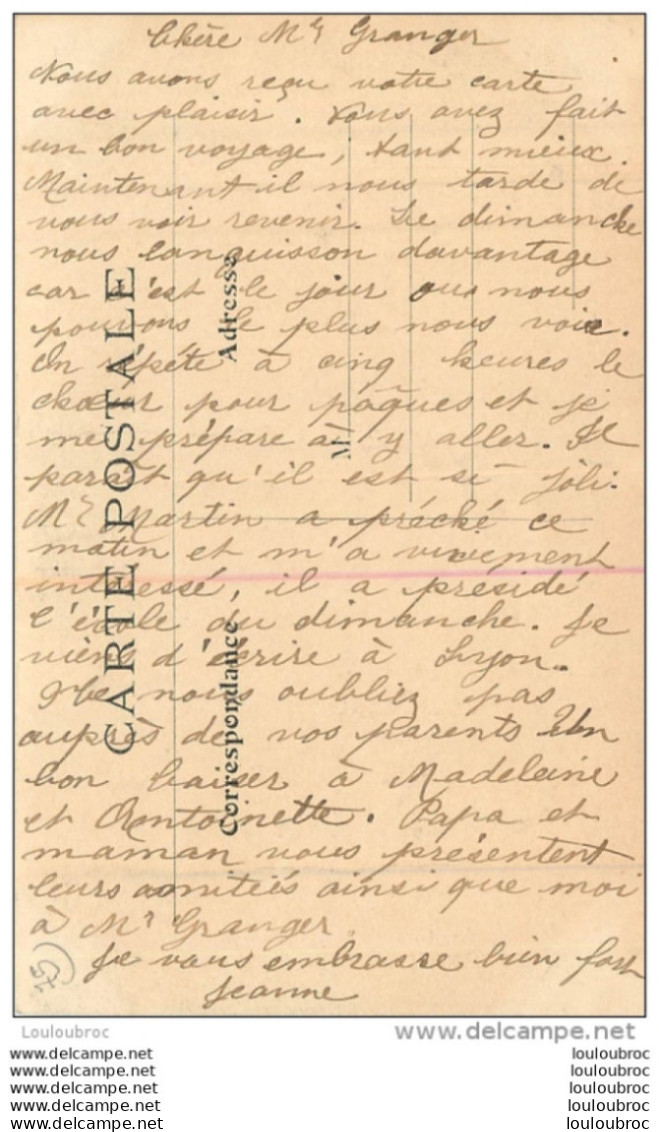 Chère Mr Granger
Nous avons reçu votre carte
avec plaisir. Vous avez fait
un bon voyage, tant mieux.
Maintenant il nous tarde de
vous voir revenir. Le dimanche
nous languisson davantage
car c'est le jour ous nous
pouvons le plus nous voir.
On répéte à cinq heures le
chœur pour pâques et je
me prépare à y aller. Il
paraît qu'il est si joli.
Mr Martin a préché ce
matin et m'a vivement
intéressé, il a présidé
l'école du dimanche. Je
viens d'écrire à Lyon.
Ne nous oubliez pas
auprès de vos parents Un
bon baiser à Madeleine
et Antoinette. Papa et
maman vous présentent
leurs amitiés ainsi que moi
à Mr Granger
Je vous embrasse bien fort
Jeanne
CARTE POSTALE
Correspondance
Adresse
M
75
Louloubroc
www.delcampe.net
www.delcampe.net
www.delcampe.net
www.delcampe.net
www.delcampe.net
www.delcampe.net
louloubroc
louloubroc
louloubroc
louloubroc
louloubroc